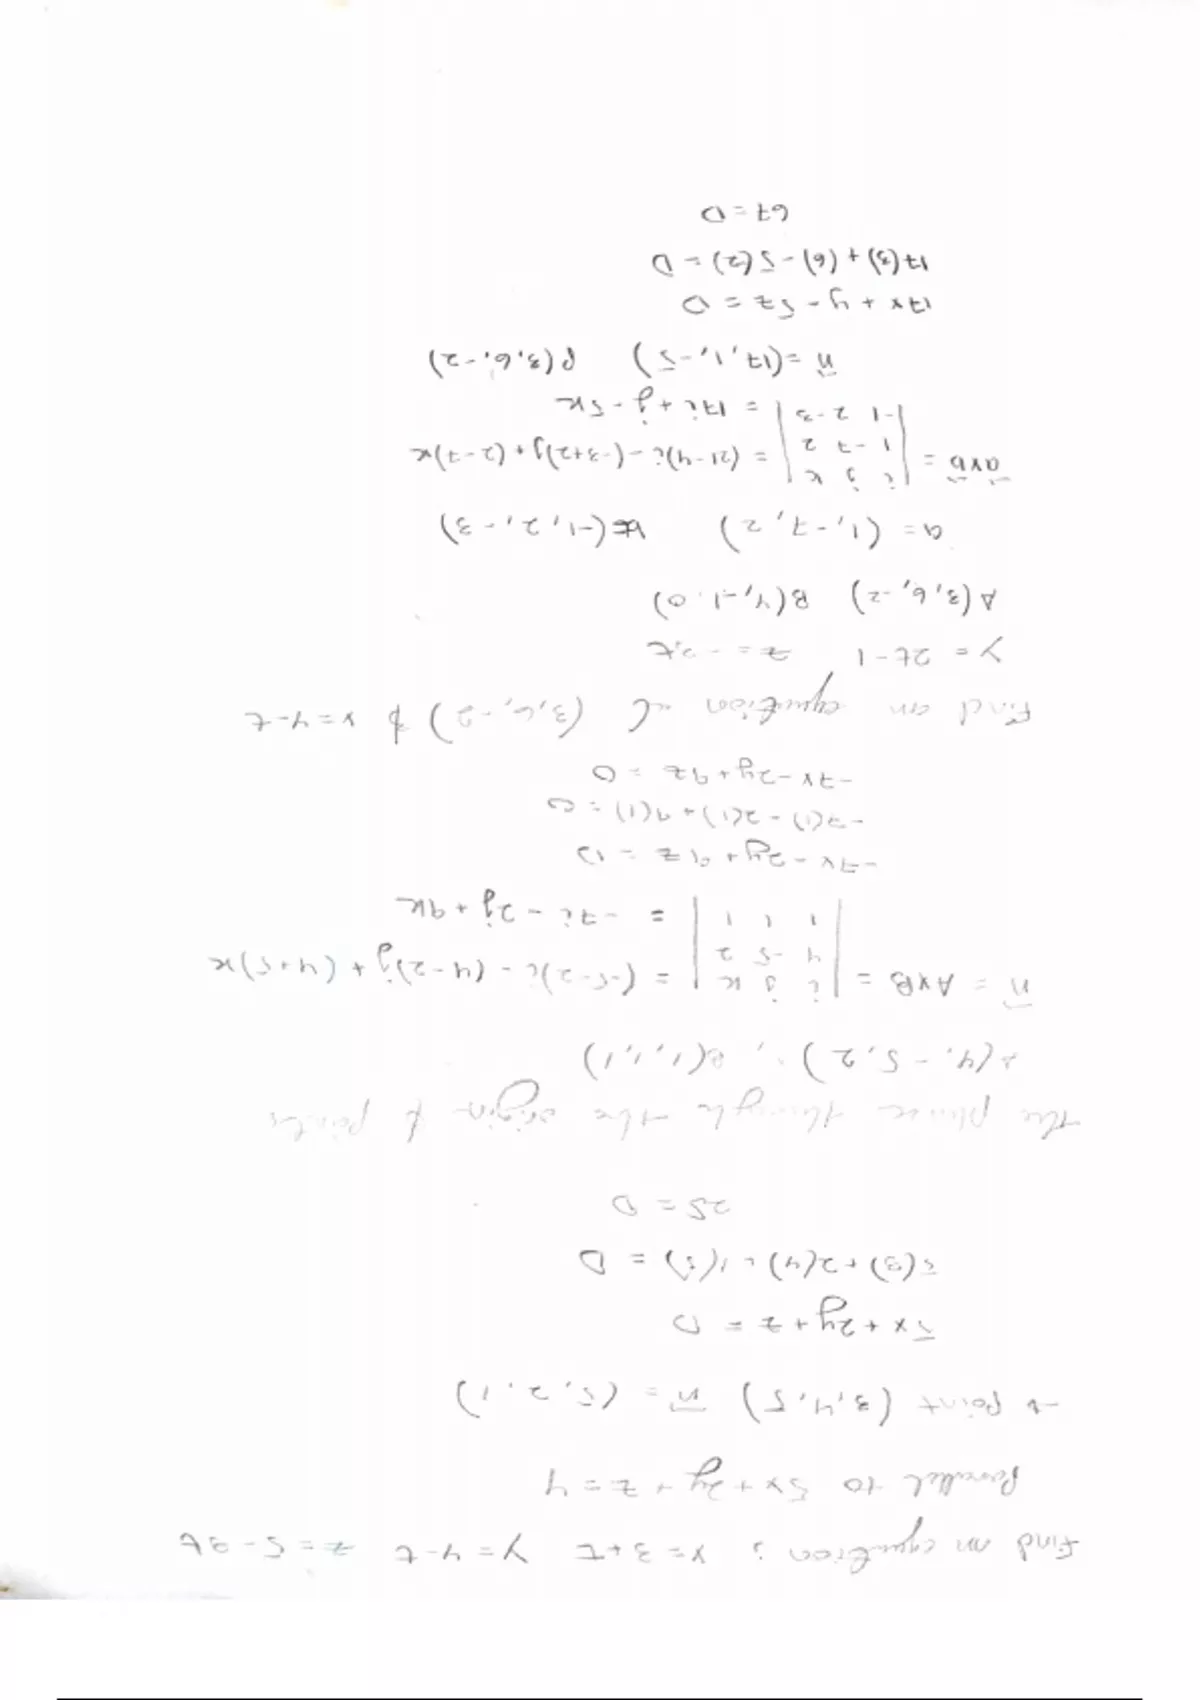 Find an equation : x = 3+t y = 4-t z = 5-3t
Parallel to 5x + 2y + z = 4
→ point (3,4,5) n = (5,2,1)
5x + 2y + z = D
5(3) + 2(4) + 1(5) = D
28 = D
the plane through the origin & points
A(4,-5,2), B(1,1,1)
n = A×B = | i j k | = (-5-2)i - (4-2)j + (4+5)k
4 -5 2
1 1 1 = -7i - 2j + 9k
-7x - 2y + 9z = D
-7(1) - 2(1) + 9(1) = 0
-7x - 2y + 9z = 0
Find an equation (3,6,-2) & x = 4-t
y = 2t-1 z = -3t
A(3,6,-2) B(4,-1,0)
a = (1,-7,2) b = (-1,2,-3)
a×b = | i j k | = (21-4)i - (-3+2)j + (2-7)k
1 -7 2
-1 2 -3 = 17i + j - 5k
n = (17,1,-5) P(3,6,-2)
17x + y - 5z = D
17(3) + (6) - 5(2) = D
67 = D